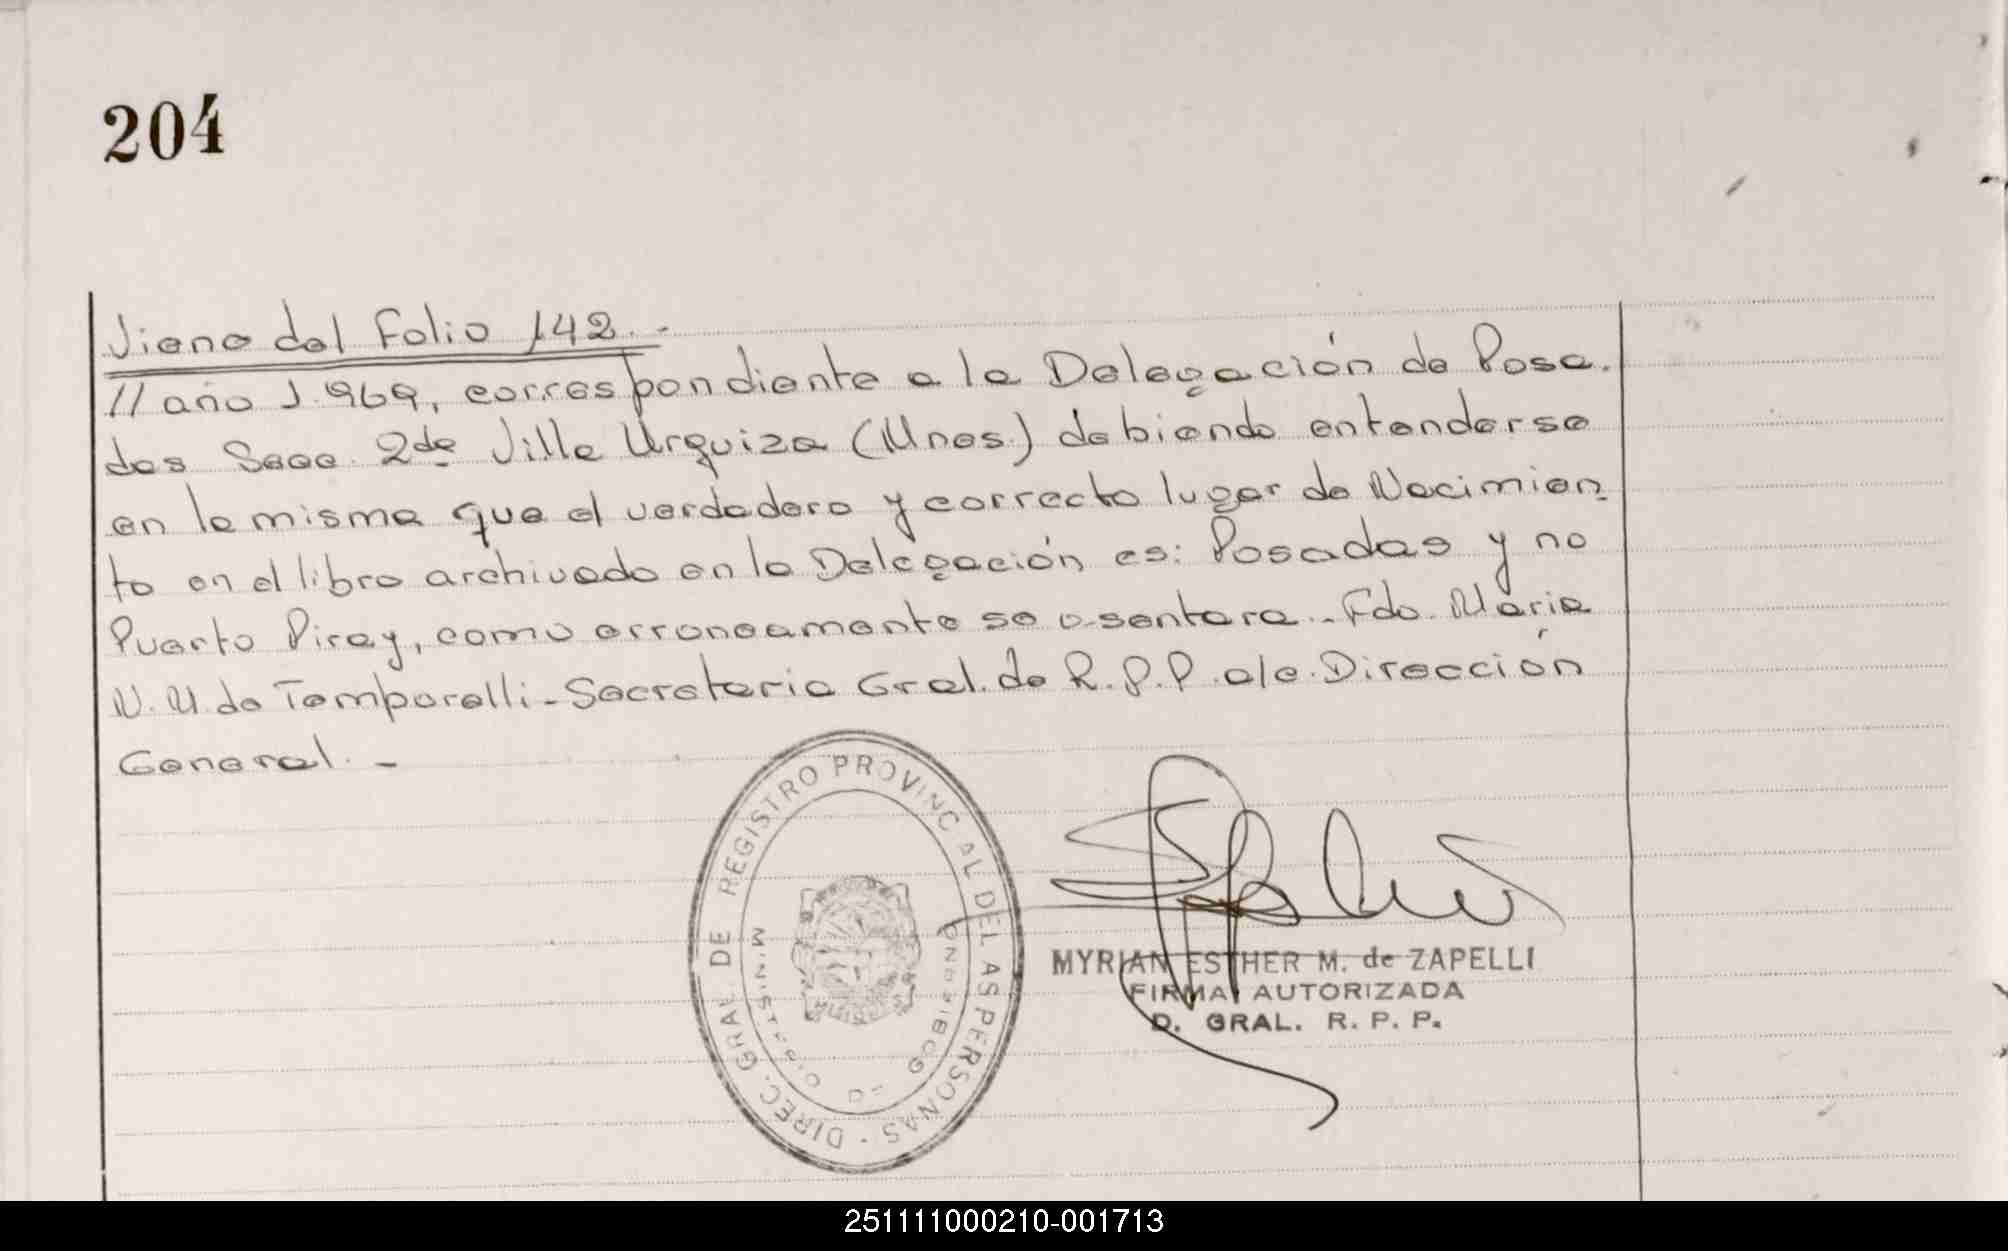 204
Viene del Folio 142.-
// año 1.969, correspondiente a la Delegación de Posa.
das Secc. 2da Villa Urquiza (Mnes.) debiendo entenderse
en la misma que el verdadero y correcto lugar de Nacimien
to en el libro archivado en la Delegación es: Posadas y no
Puerto Piray, como erroneamente se asentara.- Fdo. Maria
N. U. de Temporelli - Secretaria Gral. de R.P.P. a/c. Dirección
General. -
DIREC. GRAL. DE REGISTRO PROVINCIAL DE LAS PERSONAS
MINISTERIO DE GOBIERNO
MYRIAN ESTHER M. de ZAPELLI
FIRMA AUTORIZADA
D. GRAL. R. P. P.
251111000210-001713